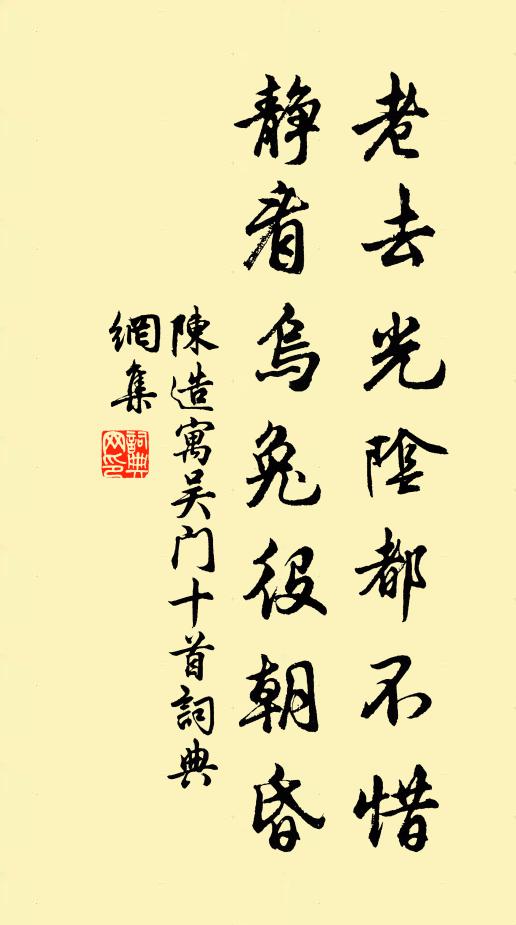 老去光陰都不惜
静看烏兔役朝昏
陳造寓吴门十首詞典
網集
詞典网印